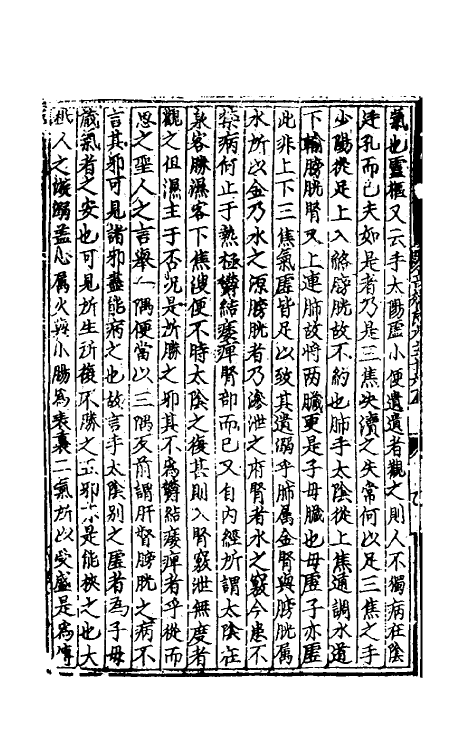 氣也靈樞又云手太陽虛小便遺遺者觀之則人不獨病在陰
廷孔而已夫如是者乃是三焦決瀆之失常何以足三焦之手
少陽從足上入絡膀胱故不約也肺手太陰從上焦通調水道
下輸膀胱腎又上連肺故將兩臟更是子母臟也母虛子亦虛
此非上下三焦氣虛皆足以致其遺溺乎肺属金腎與膀胱属
水所以金乃水之源膀胱者乃滲泄之府腎者水之竅今患不
禁病何止于熱極欝結痿痺腎部而已又自內經所謂太陰在
泉客勝濕客下焦溲便不時太陰之復甚則入腎竅泄無度者
觀之但濕主于否况是所勝之邪其不爲欝結痿痺者乎從而
思之聖人之言舉一隅便當以三隅反前謂肝督膀胱之病不
言其邪可見諸邪盡能病之也故言手太陰别之虛者爲子母
藏氣者之安也可見所生所復不勝之正邪亦是能挾之也大
抵人之遺溺盖心属火與小腸爲表裏二氣所以受盛是爲傳